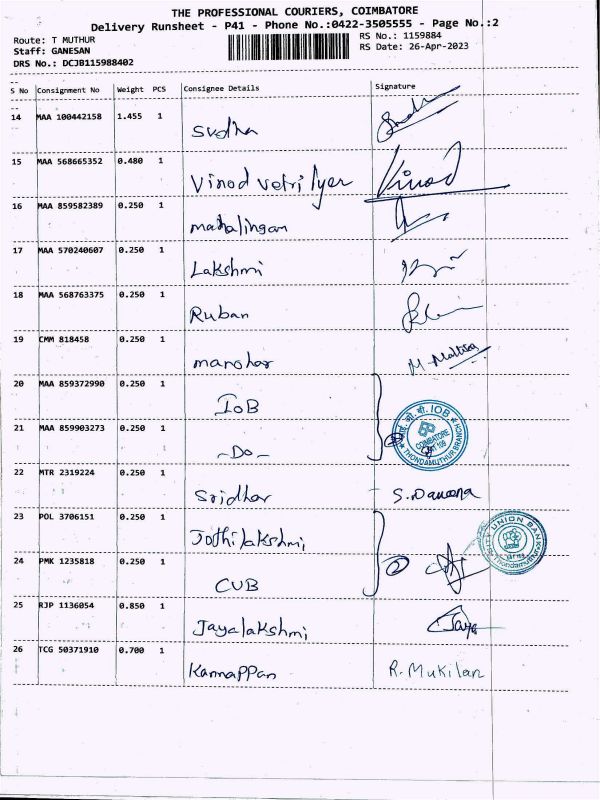 THE PROFESSIONAL COURIERS, COIMBATORE
Delivery Runsheet - P41 - Phone No.:0422-3505555 - Page No.:2
Route: T MUTHUR
RS No.: 1159884
Staff: GANESAN
RS Date: 26-Apr-2023
DRS No.: DCJB115988402
S No Consignment No Weight PCS Consignee Details Signature
14 MAA 100442158 1.455 1
Sudha
15 MAA 568665352 0.480 1
Vinod vetri Iyer Vinod
16 MAA 859582389 0.250 1
mahalingam
17 MAA 570240607 0.250 1
Lakshmi
18 MAA 568763375 0.250 1
Ruban
19 CMM 818458 0.250 1
manohar M.
20 MAA 859372990 0.250 1
IOB
21 MAA 859903273 0.250 1
-Do-
IOB
COIMBATORE
THONDAMUTHUR BRANCH
22 MTR 2319224 0.250 1
Sridhar S.
23 POL 3706151 0.250 1
Jothilakshmi
24 PMK 1235818 0.250 1
CUB
UNION BANK
Thondamuthur
25 RJP 1136054 0.850 1
Jayalakshmi Jaya
26 TCG 50371910 0.700 1
Kannappan R. Mukilan